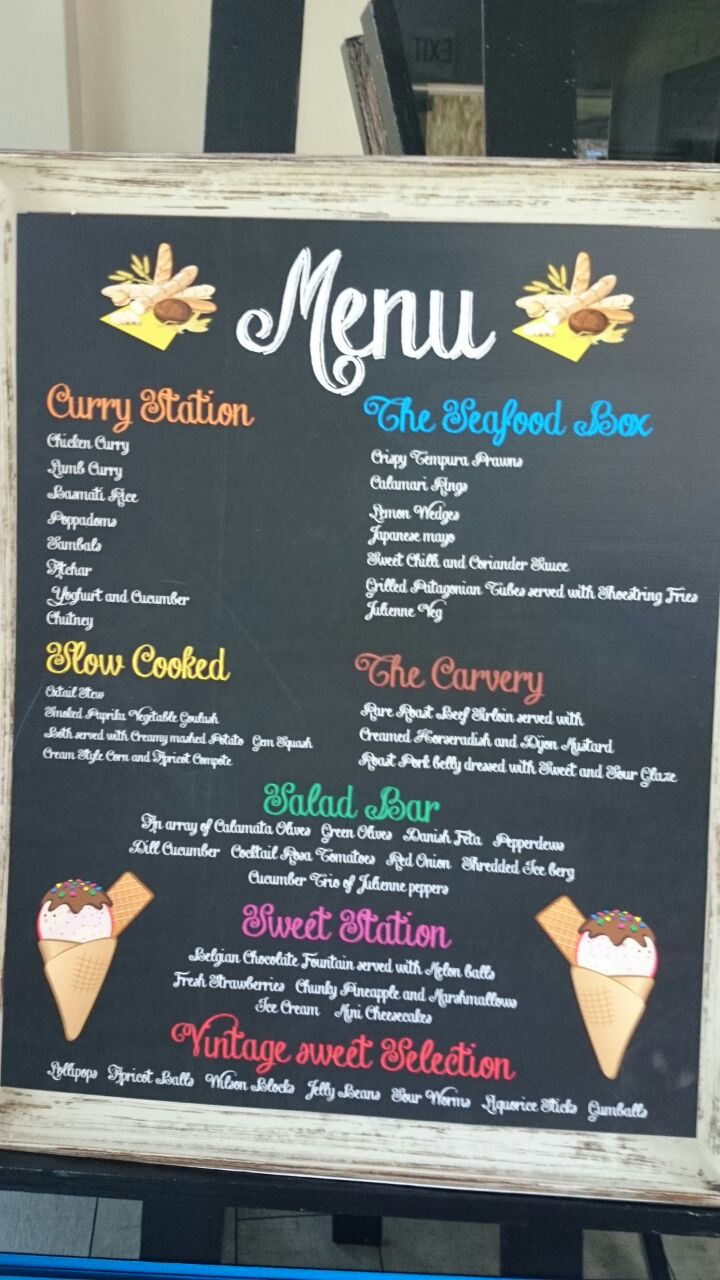 EXIT
Menu
Curry Station
Chicken Curry
Lamb Curry
Basmati Rice
Poppadoms
Sambals
Atchar
Yoghurt and Cucumber
Chutney
The Seafood Box
Crispy Tempura Prawns
Calamari Rings
Lemon Wedges
Japanese mayo
Sweet Chilli and Coriander Sauce
Grilled Patagonian Tubes served with Shoestring Fries
Julienne Veg
Slow Cooked
Oxtail Stew
Smoked Paprika Vegetable Goulash
Both served with Creamy mashed Potato Gem Squash
Cream Style Corn and Apricot Compote
The Carvery
Rare Roast Beef Sirloin served with
Creamed Horseradish and Dijon Mustard
Roast Pork belly dressed with Sweet and Sour Glaze
Salad Bar
An array of Calamata Olives Green Olives Danish Feta Pepperdews
Dill Cucumber Cocktail Rosa Tomatoes Red Onion Shredded Ice berg
Cucumber Trio of Julienne peppers
Sweet Station
Belgian Chocolate Fountain served with Melon balls
Fresh Strawberries Chunky Pineapple and Marshmallows
Ice Cream Mini Cheesecakes
Vintage sweet Selection
Lollipops Apricot Balls Wilson Blocks Jelly Beans Sour Worms Liquorice Sticks Gumballs